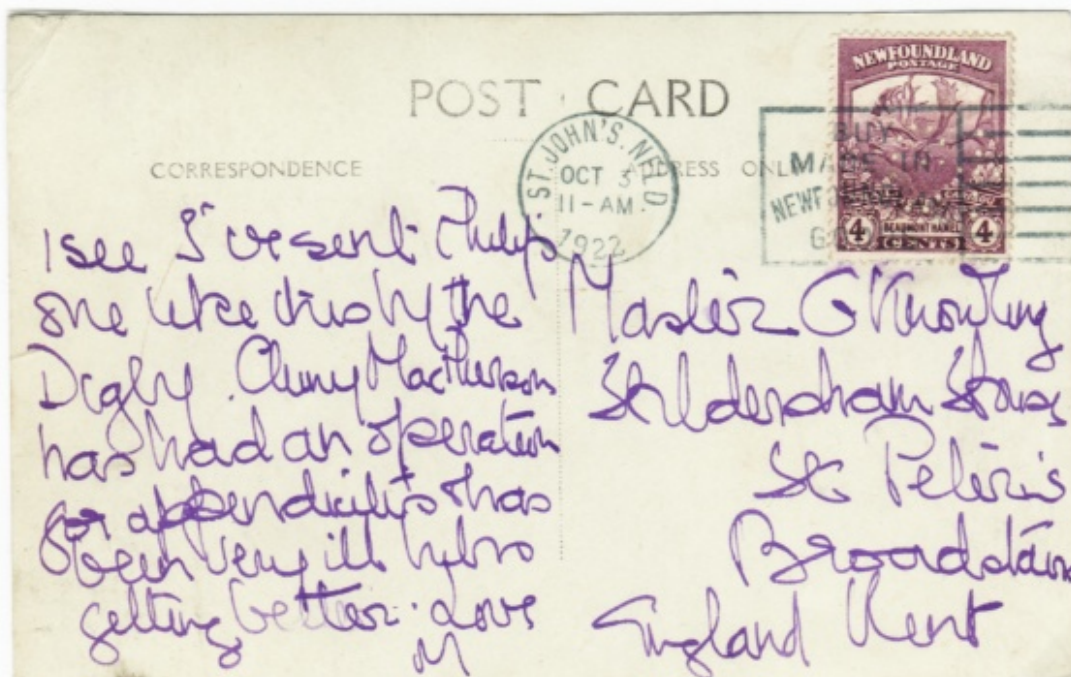 POST CARD
CORRESPONDENCE
ADDRESS ONLY
ST. JOHN'S. NFLD.
OCT 3
11-AM.
1922
BUY
MADE IN
NEWFOUNDLAND
NEWFOUNDLAND
POSTAGE
4 BEAUMONT HAMEL 4
CENTS
I see I've sent Philip's
one like this by the
Digby. Cluny MacPherson
has had an operation
for appendicitis & has
been very ill but is
getting better. Love
M
Master G Knowling
House
St Peter's
Broadstairs
England Kent